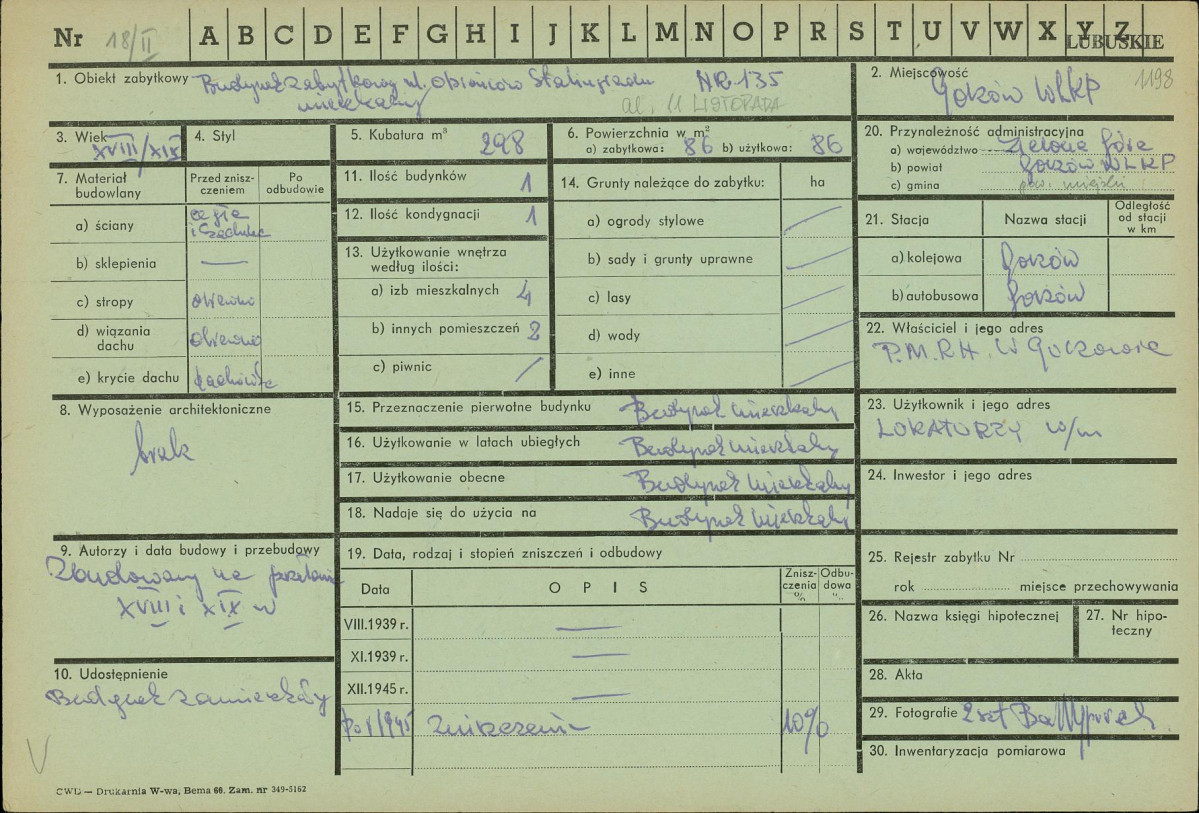 Nr 18/II A B C D E F G H I J K L M N O P R S T U V W X Y Z
LUBUSKIE
1. Obiekt zabytkowy Budynek zabytkowy ul. Obrońców Stalingradu NR. 135
mieszkalny al. 11 LISTOPADA
2. Miejscowość 1198
Gorzów WLKP
3. Wiek XVIII/XIX
4. Styl
5. Kubatura m³ 298
6. Powierzchnia w m²
a) zabytkowa: 86 b) użytkowa: 86
7. Materiał budowlany
Przed zniszczeniem
Po odbudowie
a) ściany cegła
i
b) sklepienia —
c) stropy drewno
d) wiązania dachu drewno
e) krycie dachu dachówka
8. Wyposażenie architektoniczne
brak
9. Autorzy i data budowy i przebudowy
Zbudowany na przełomie
XVIII i XIX w
10. Udostępnienie
Budynek zamieszkały
11. Ilość budynków 1
12. Ilość kondygnacji 1
13. Użytkowanie wnętrza
według ilości:
a) izb mieszkalnych 4
b) innych pomieszczeń 2
c) piwnic /
14. Grunty należące do zabytku: ha
a) ogrody stylowe
b) sady i grunty uprawne
c) lasy
d) wody
e) inne
15. Przeznaczenie pierwotne budynku Budynek mieszkalny
16. Użytkowanie w latach ubiegłych Budynek mieszkalny
17. Użytkowanie obecne Budynek mieszkalny
18. Nadaje się do użycia na Budynek mieszkalny
19. Data, rodzaj i stopień zniszczeń i odbudowy
Data OPIS Zniszczenia % Odbudowa %
VIII.1939 r. —
XI.1939 r. —
XII.1945 r. —
po 1945 Zniszczenia 10%
20. Przynależność administracyjna
a) województwo Zielona Góra
b) powiat Gorzów WLKP
c) gmina pow. miejski
21. Stacja Nazwa stacji Odległość od stacji w km
a) kolejowa Gorzów
b) autobusowa Gorzów
22. Właściciel i jego adres
P.M.R.H. W Gorzowie
23. Użytkownik i jego adres
LOKATORZY w/m
24. Inwestor i jego adres
25. Rejestr zabytku Nr
rok miejsce przechowywania
26. Nazwa księgi hipotecznej
27. Nr hipoteczny
28. Akta
29. Fotografie 2 szt
30. Inwentaryzacja pomiarowa
V
CWD — Drukarnia W-wa, Bema 60. Zam. nr 349-5162